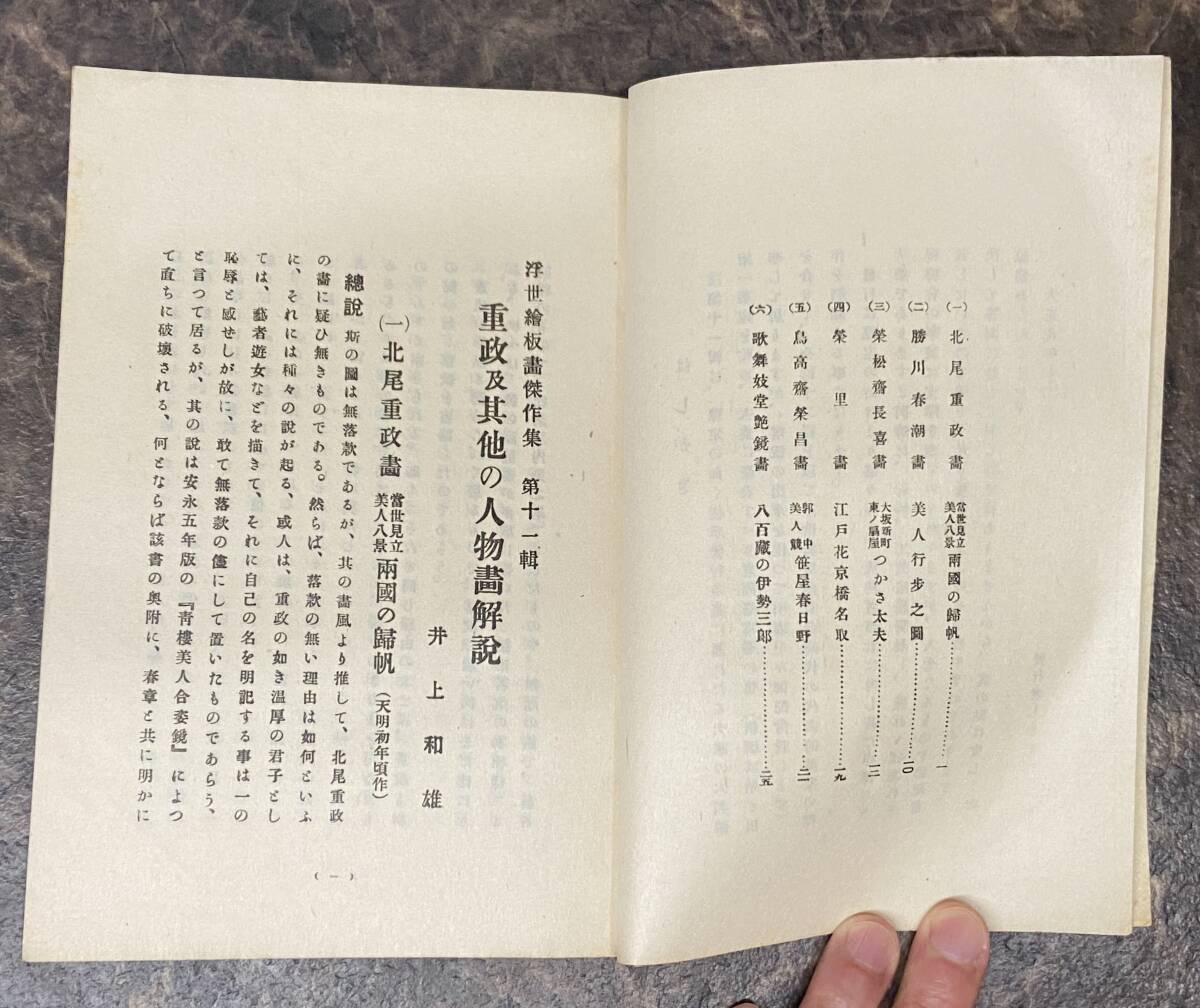 (一) 北尾重政畫 當世見立美人八景 兩國の歸帆…………一
(二) 勝川春潮畫 美人行步之圖…………一〇
(三) 榮松齋長喜畫 大坂新町東ノ扇屋 つかさ太夫…………一三
(四) 榮里畫 江戸花京橋名取…………一九
(五) 鳥高齋榮昌畫 郭中美人競 笹屋春日野…………二一
(六) 歌舞妓堂艶鏡畫 八百藏の伊勢三郎…………二五
浮世繪板畫傑作集 第十一輯
重政及其他の人物畫解說
井上和雄
(一) 北尾重政畫 當世見立美人八景 兩國の歸帆 (天明初年頃作)
總說 斯の圖は無落款であるが、其の畵風より推して、北尾重政
の畵に疑ひ無きものである。然らば、落款の無い理由は如何といふ
に、それには種々の說が起る、或人は、重政の如き温厚の君子とし
ては、藝者遊女などを描きて、それに自己の名を明記する事は一の
恥辱と感せしが故に、敢て無落款の儘にして置いたものであらう、
と言つて居るが、其の說は安永五年版の『靑樓美人合姿鏡』によつ
て直ちに破壞される、何とならば該書の奥附に、春章と共に明かに
(一)